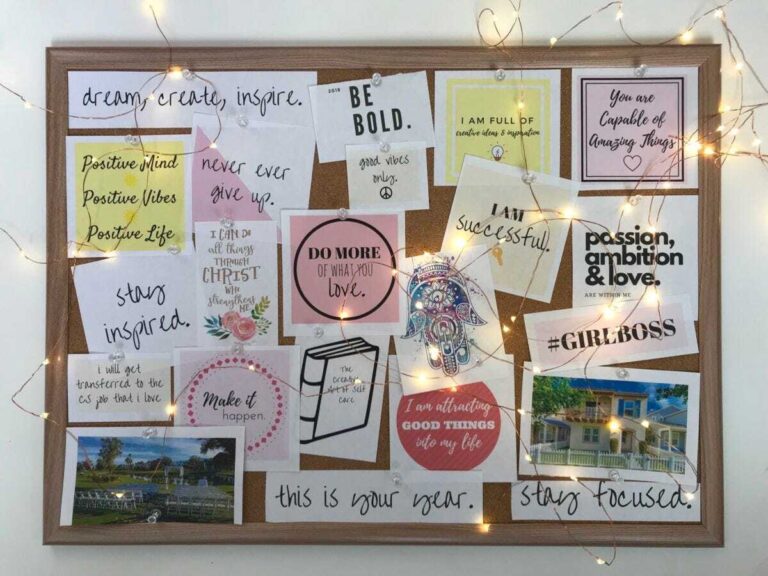 dream, create, inspire.
2019
BE
BOLD.
I AM FULL OF
creative ideas & inspiration
You are
Capable of
Amazing Things
Positive Mind
Positive Vibes
Positive Life
never ever
give up.
good vibes
only.
I AM
successful.
passion,
ambition
& love.
ARE WITHIN ME
I CAN DO
all things
THROUGH
CHRIST
WHO
strengthens
ME
DO MORE
OF WHAT YOU
love.
stay
inspired.
#GIRLBOSS
i will get
transferred to the
CS job that i love
Make it
happen.
The
Art of Self
Care
I am attracting
GOOD THINGS
into my life
this is your year.
stay focused.